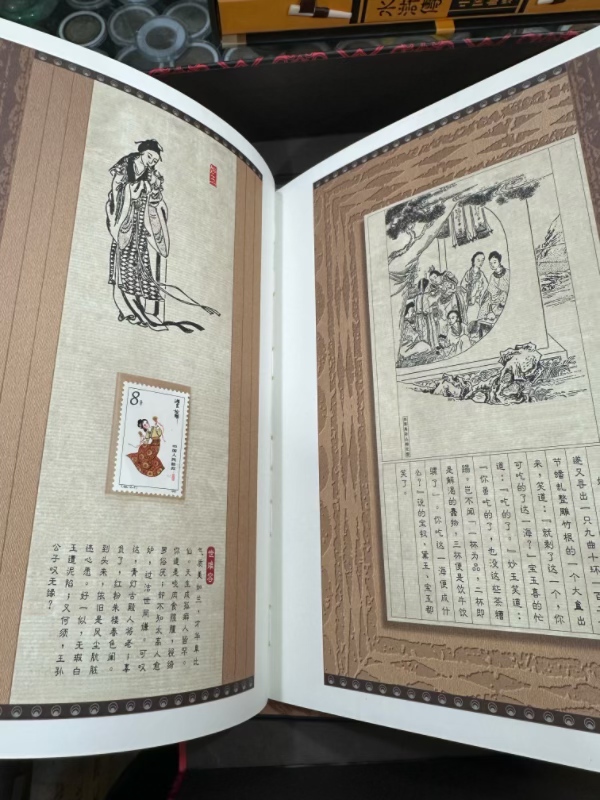 水滸傳
8分
中国人民邮政
世难容
气质美如兰,才华阜比
仙。天生成孤癖人皆罕。
你道是啖肉食腥膻,视绮
罗俗厌;却不知太高人愈
妒,过洁世同嫌。可叹
这,青灯古殿人将老;辜
负了,红粉朱楼春色阑。
到头来,依旧是风尘肮脏
违心愿。好一似,无瑕白
玉遭泥陷;又何须,王孙
公子叹无缘?
遂又寻出一只九曲十环一百二
节蟠虬整雕竹根的一个大盏出
来,笑道:“就剩了这一个,你
可吃的了这一海?”宝玉喜的忙
道:“吃的了。”妙玉笑道:
“你虽吃的了,也没这些茶糟
踏。岂不闻‘一杯为品,二杯即
是解渴的蠢物,三杯便是饮牛饮
骡了’。你吃这一海便成什
么?”说的宝钗、黛玉、宝玉都
笑了。